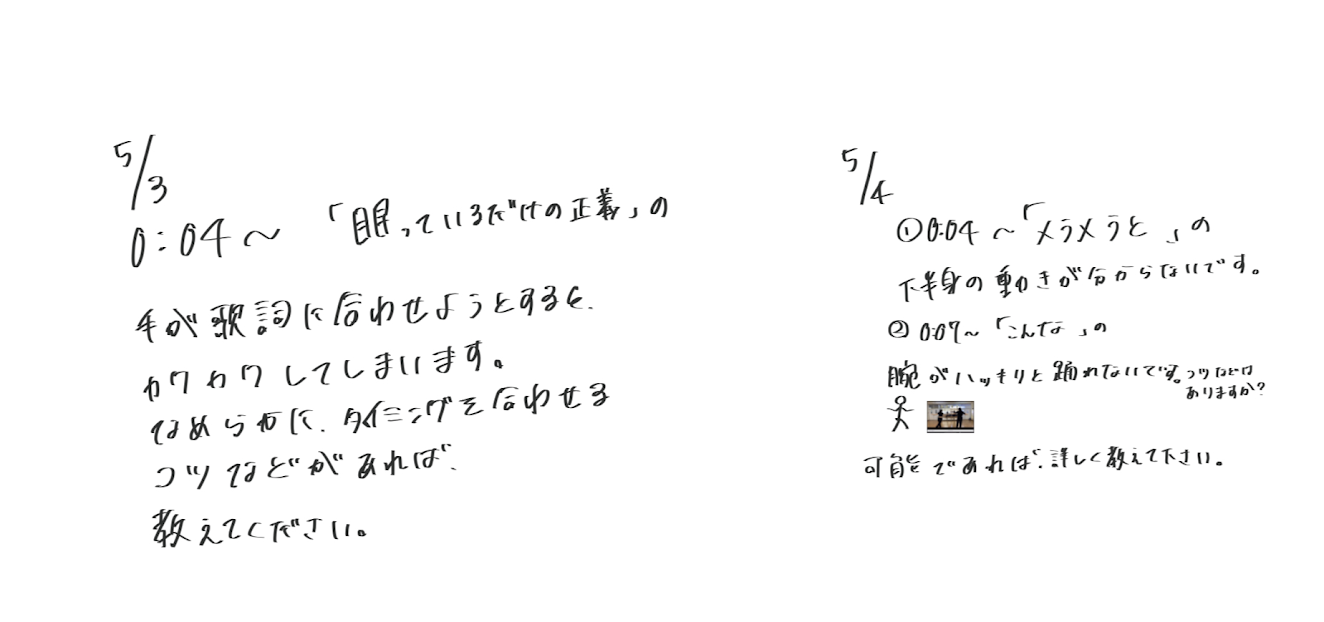 5/3
0:04～ 「眠っているだけの正義」の
手が歌詞に合わせようとすると、
カクカクしてしまいます。
なめらかに、タイミングを合わせる
コツなどがあれば、
教えてください。
5/4
①0:04～「メラメラと」の
下半身の動きが分からないです。
②0:07～「こんな」の
腕がハッキリと踊れないです。コツなどは
ありますか?
可能であれば、詳しく教えて下さい。